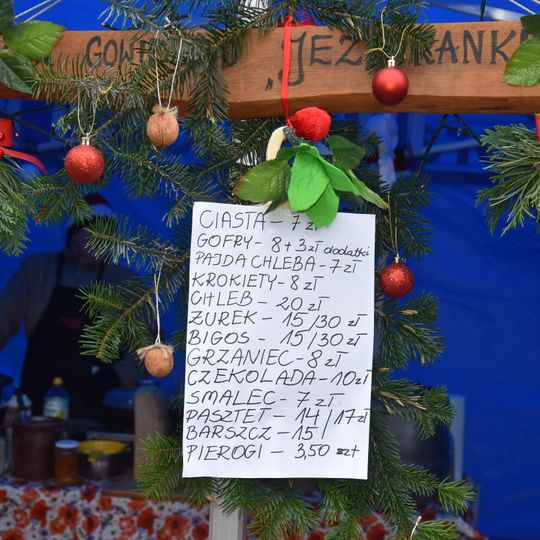 „JEŻ
CIASTA - 7 zł
GOFRY - 8 + 3 zł dodatki
PAJDA CHLEBA - 7 zł
KROKIETY - 8 zł
CHLEB - 20 zł
ŻUREK - 15/30 zł
BIGOS - 15/30 zł
GRZANIEC - 8 zł
CZEKOLADA - 10 zł
SMALEC - 7 zł
PASZTET - 14/17 zł
BARSZCZ - 15/
PIEROGI - 3,50 szt